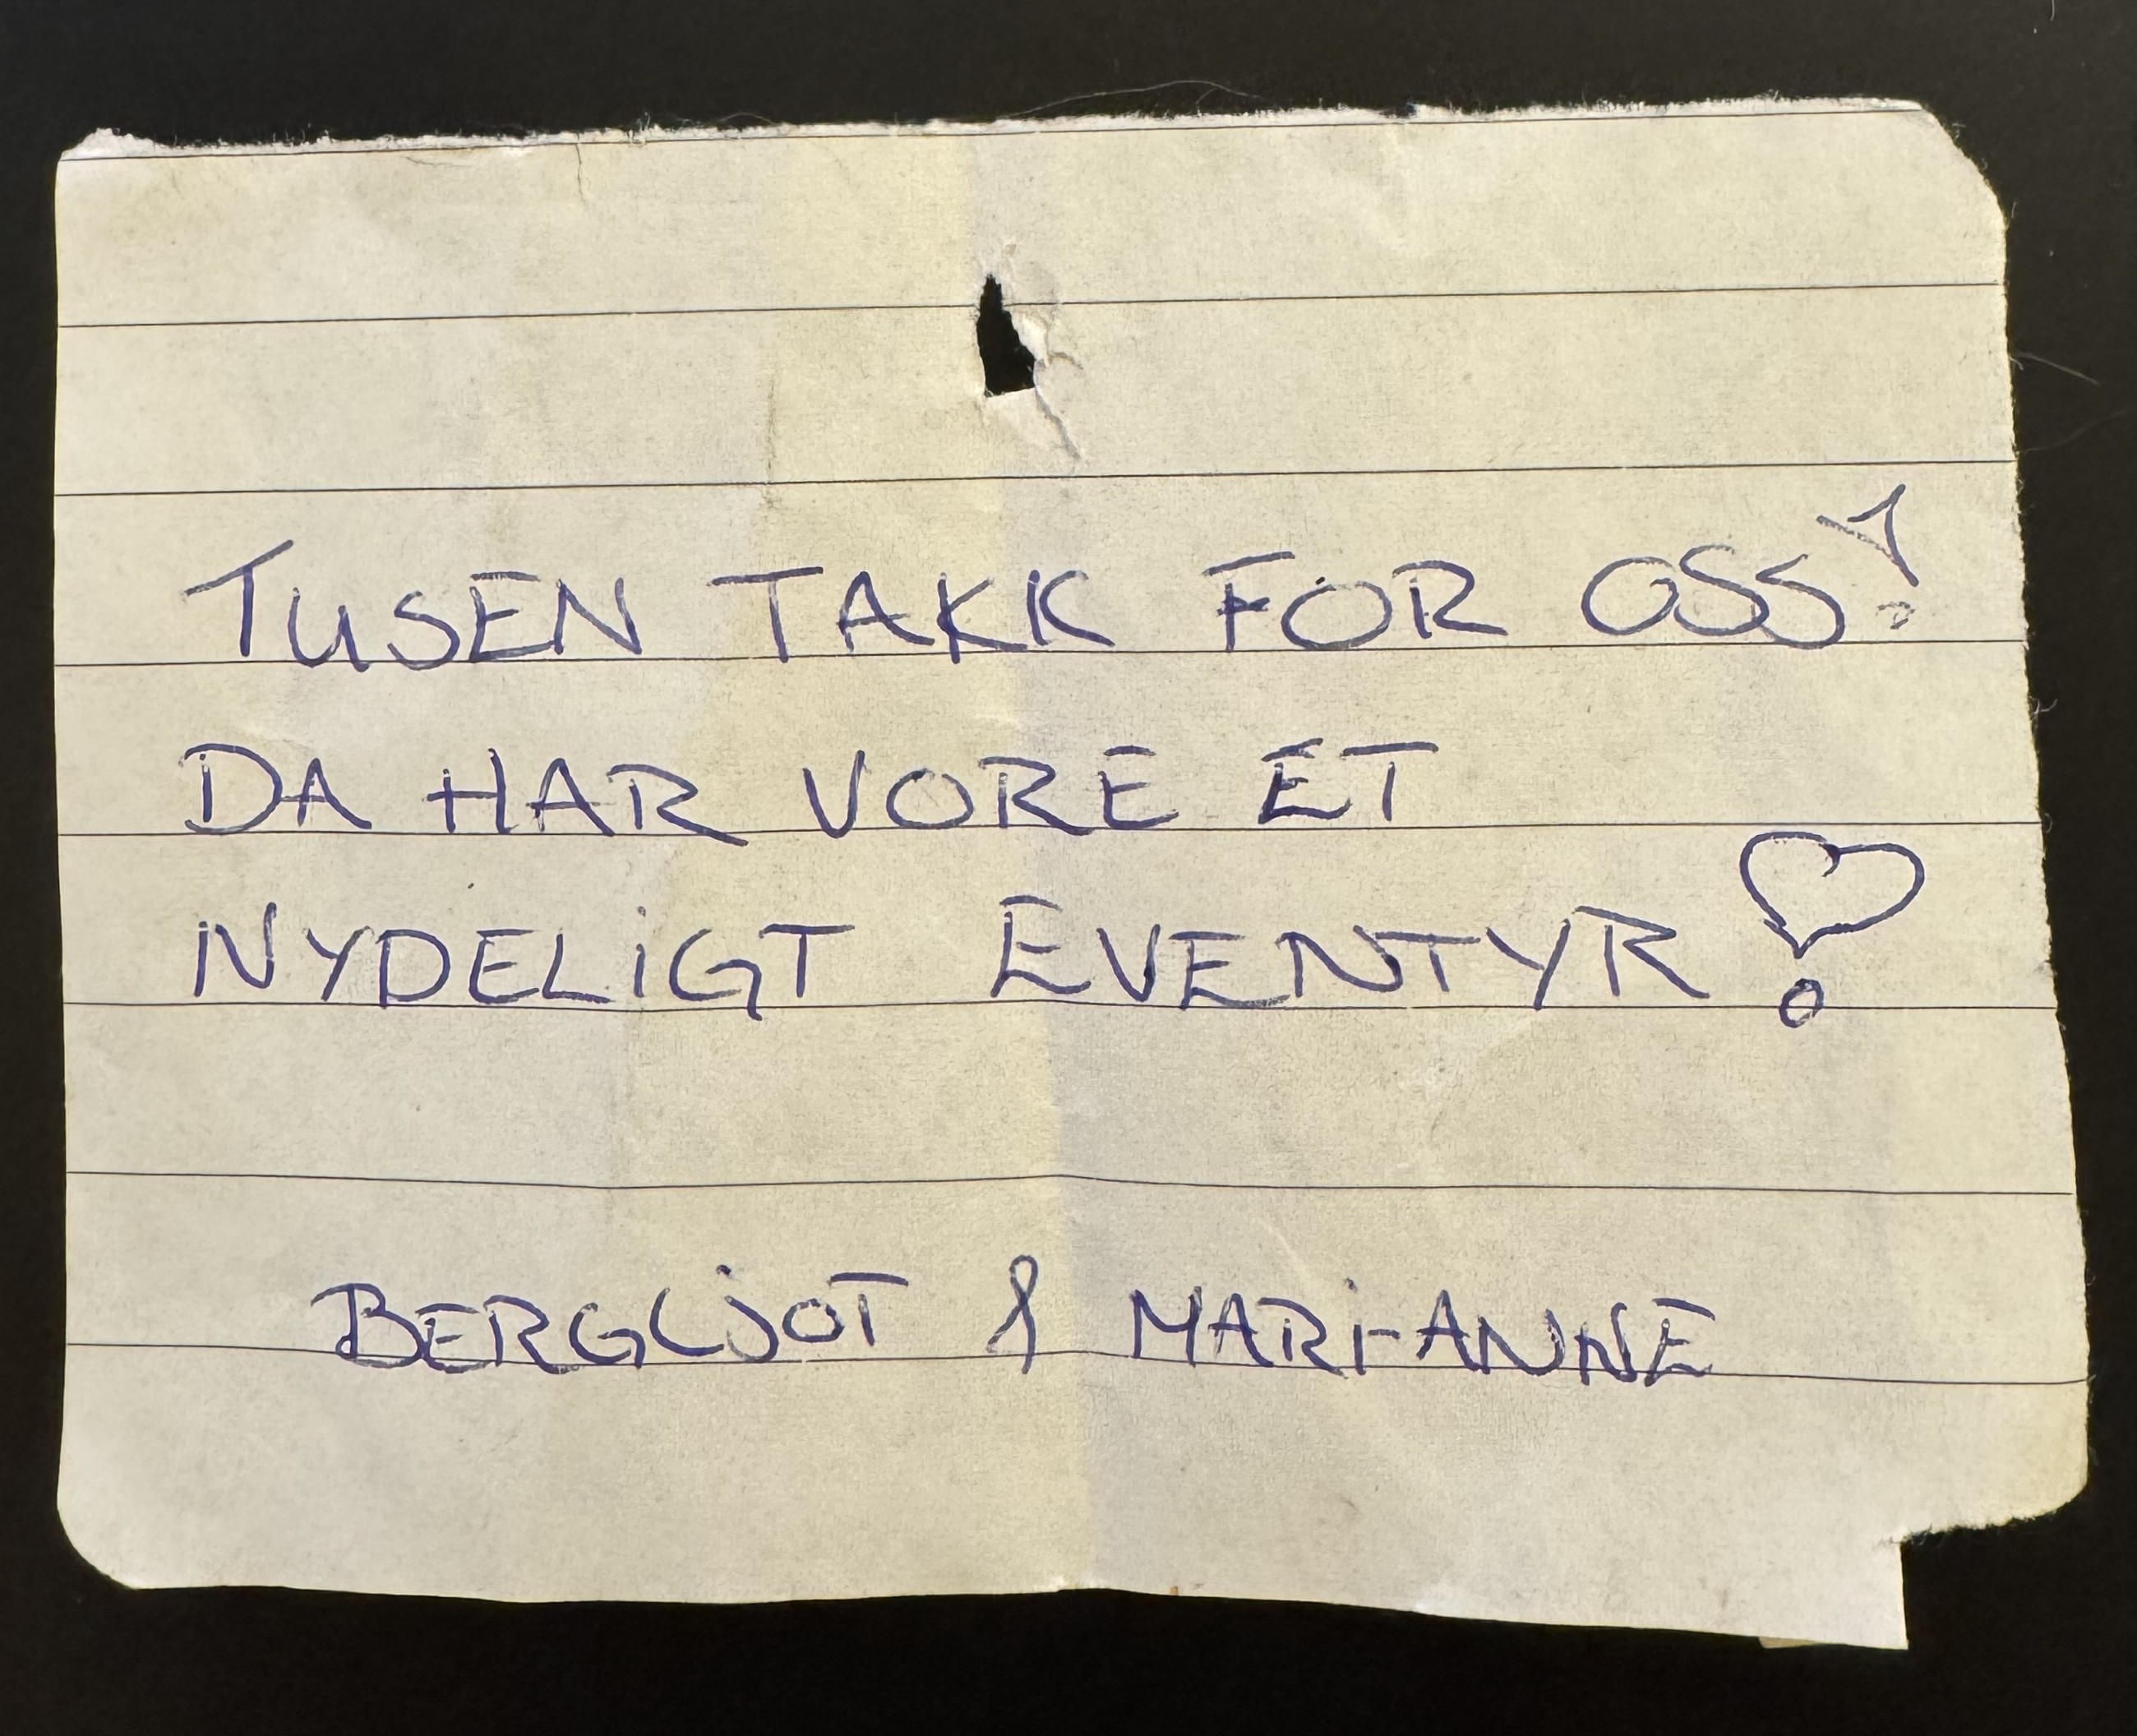 TUSEN TAKK FOR OSS!
DA HAR VORE ET
NYDELIGT EVENTYR!
BERGLJOT & MARI-ANNE